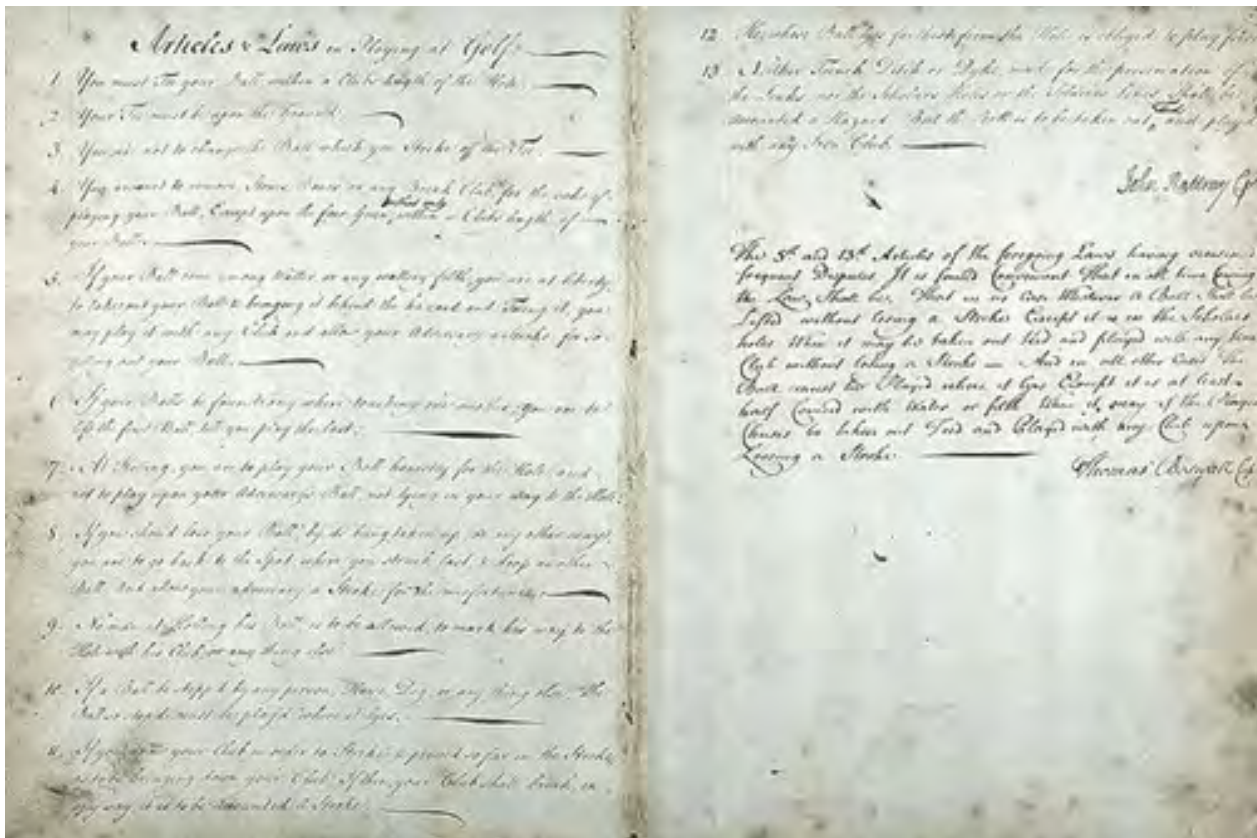 Articles & Laws in Playing at Golf.
1. You must Tee your Ball within a Clubs length of the Hole.
2. Your Tee must be upon the Ground.
3. You are not to change the Ball which you Stroke off the Tee.
4. You are not to remove Stones Bones or any Break Club, for the sake of
playing your Ball, Except upon the fair Green, & that only within a Clubs length of
your Ball.
5. If your Ball come among Watter, or any wattery filth, you are at liberty
to take out your Ball & bringing it behind the hazard and Teeing it, you
may play it with any Club and allow your Adversary a Stroke, for so
getting out your Ball.
6. If your Balls be found any where touching one another, you are to
lift the first Ball, till you play the last.
7. At Holing, you are to play your Ball honestly for the Hole, and
not to play upon your Adversary's Ball, not lying in your way to the Hole.
8. If you should lose your Ball, by it's being taken up, or any other way,
you are to go back to the Spot, where you struck last, & drop another
Ball, And allow your adversary a Stroke for the misfortune.
9. No man at Holing his Ball, is to be allowed, to mark his way to the
Hole with his Club, or any thing else.
10. If a Ball be stopp'd by any person, Horse, Dog, or any thing else, The
Ball so stop'd must be play'd where it lyes.
11. If you draw your Club in order to Stroke, & proceed so far in the Stroke,
as to be bringing down your Club; If then, your Club shall break, in
any way, it is to be Accounted a Stroke.
12. He whose Ball lyes farthest from the Hole is obliged to play first
13. Neither Trench Ditch or Dyke, made for the preservation of
the Links, nor the Scholars Holes or the Soldiers Lines, Shall be
accounted a Hazard. But the Ball is to be taken out, Teed and play'd
with any Iron Club.
John Rattray Cp
The 5th and 13th Articles of the foregoing Laws having occasion
frequent Disputes It is found Convenient That in all time Coming
the Law Shall be, That in no Case Whatever a Ball Shall be
Lifted without losing a Stroke Except it is in the Scholars
holes When it may be taken out teed and played with any Iron
Club without losing a Stroke And in all other Cases The
Ball must be Played where it lyes Except it is at least
half Covered with Water or filth When it may if the Player
Chuses be taken out Teed and Played with any Club upon
Loosing a Stroke
Thomas Boswall Cp